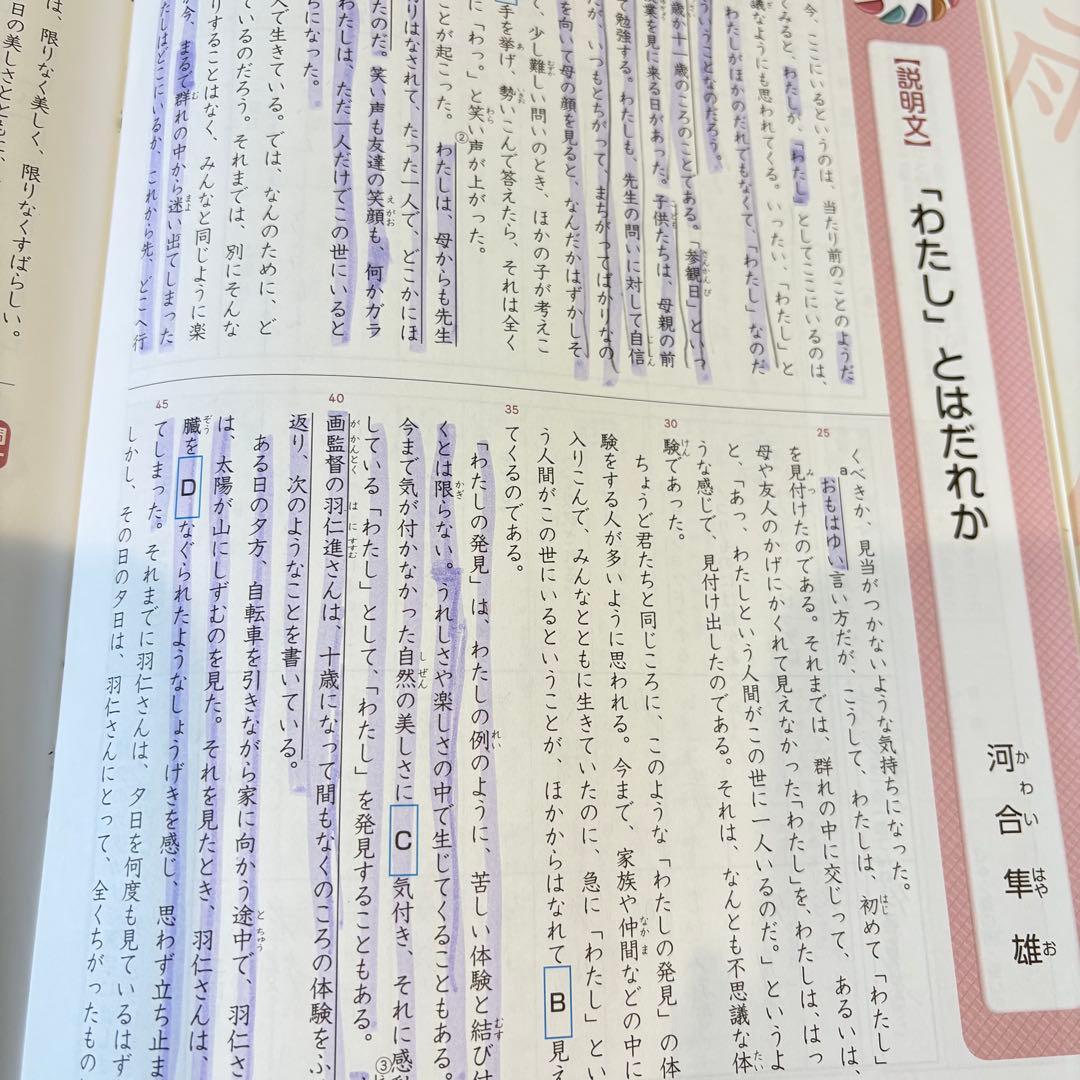 【説明文】 「わたし」とはだれか
河合隼雄
かわい はやお
今、ここにいるというのは、当たり前のことのようだ
てみると、わたしが、「わたし」としてここにいるのは、
議なようにも思われてくる。いったい、「わたし」と
わたしがほかのだれでもなくて、「わたし」なのだ
ういうことなのだろう。
歳か十一歳のころのことである。「参観日」といっ
業を見に来る日があった。子供たちは、母親の前
て勉強する。わたしも、先生の問いに対して自信
だが、いつもとちがって、まちがってばかりなの
を向いて母の顔を見ると、なんだかはずかしそ
て、少し難しい問いのとき、ほかの子が考えこ
手を挙げ、勢いこんで答えたら、それは全く
「わっ。」と笑い声が上がった。
ことが起こった。②わたしは、母からも先生
りはなされて、たった一人で、どこかにほ
たのだ。笑い声も友達の笑顔も、何かガラ
わたしは、ただ一人だけでこの世にいると
ちになった。
人で生きている。では、なんのために、ど
ているのだろう。それまでは、別にそんな
りすることはなく、みんなと同じように楽
が今、まるで群れの中から迷い出てしまった
たしはどこにいるか、これから先、どこへ行
25
くべきか、見当がつかないような気持ちになった。
aおもはゆい言い方だが、こうして、わたしは、初めて「わたし」
を見付けたのである。それまでは、群れの中に交じって、あるいは、
母や友人のかげにかくれて見えなかった「わたし」を、わたしは、はっ
と、「あっ、わたしという人間がこの世に一人いるのだ。」というよ
うな感じで、見付け出したのである。それは、なんとも不思議な体
30
験であった。
ちょうど君たちと同じころに、このような「わたしの発見」の体
験をする人が多いように思われる。今まで、家族や仲間などの中に
入りこんで、みんなとともに生きていたのに、急に「わたし」とい
う人間がこの世にいるということが、ほかからはなれて B 見え
35
てくるのである。
「わたしの発見」は、わたしの例のように、苦しい体験と結び付
くとは限らない。うれしさや楽しさの中で生じてくることもある。
今まで気が付かなかった自然の美しさに C 気付き、それに感動
している「わたし」として、「わたし」を発見することもある。③
40
画監督の羽仁進さんは、十歳になって間もなくのころの体験をふ
返り、次のようなことを書いている。
ある日の夕方、自転車を引きながら家に向かう途中で、羽仁さ
は、太陽が山にしずむのを見た。それを見たとき、羽仁さんは、
臓を D なぐられたようなしょうげきを感じ、思わず立ち止ま
45
てしまった。それまでに羽仁さんは、夕日を何度も見ているはず
しかし、その日の夕日は、羽仁さんにとって、全くちがったもの
は、限りなく美しく、限りなくすばらしい。
日の美しさとともに、